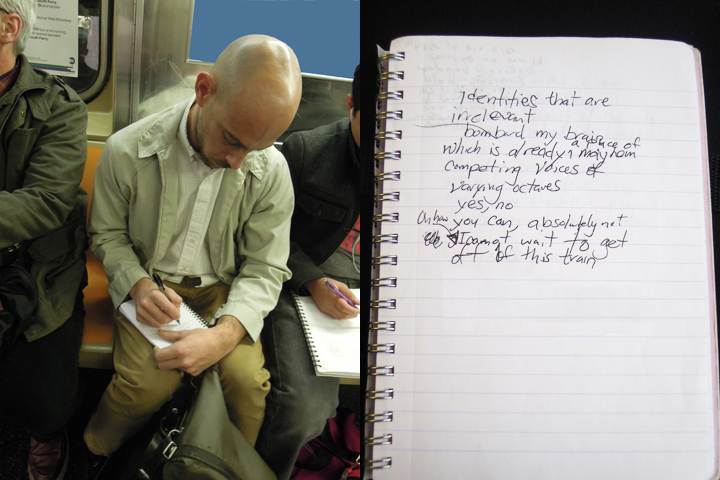 South Ferry
Identities that are
irrelevant
bombard my brain
a of
which is already mayhem
competing voices of
varying octaves
yes, no
Oh how you can, absolutely not
I cannot wait to get
off of this train